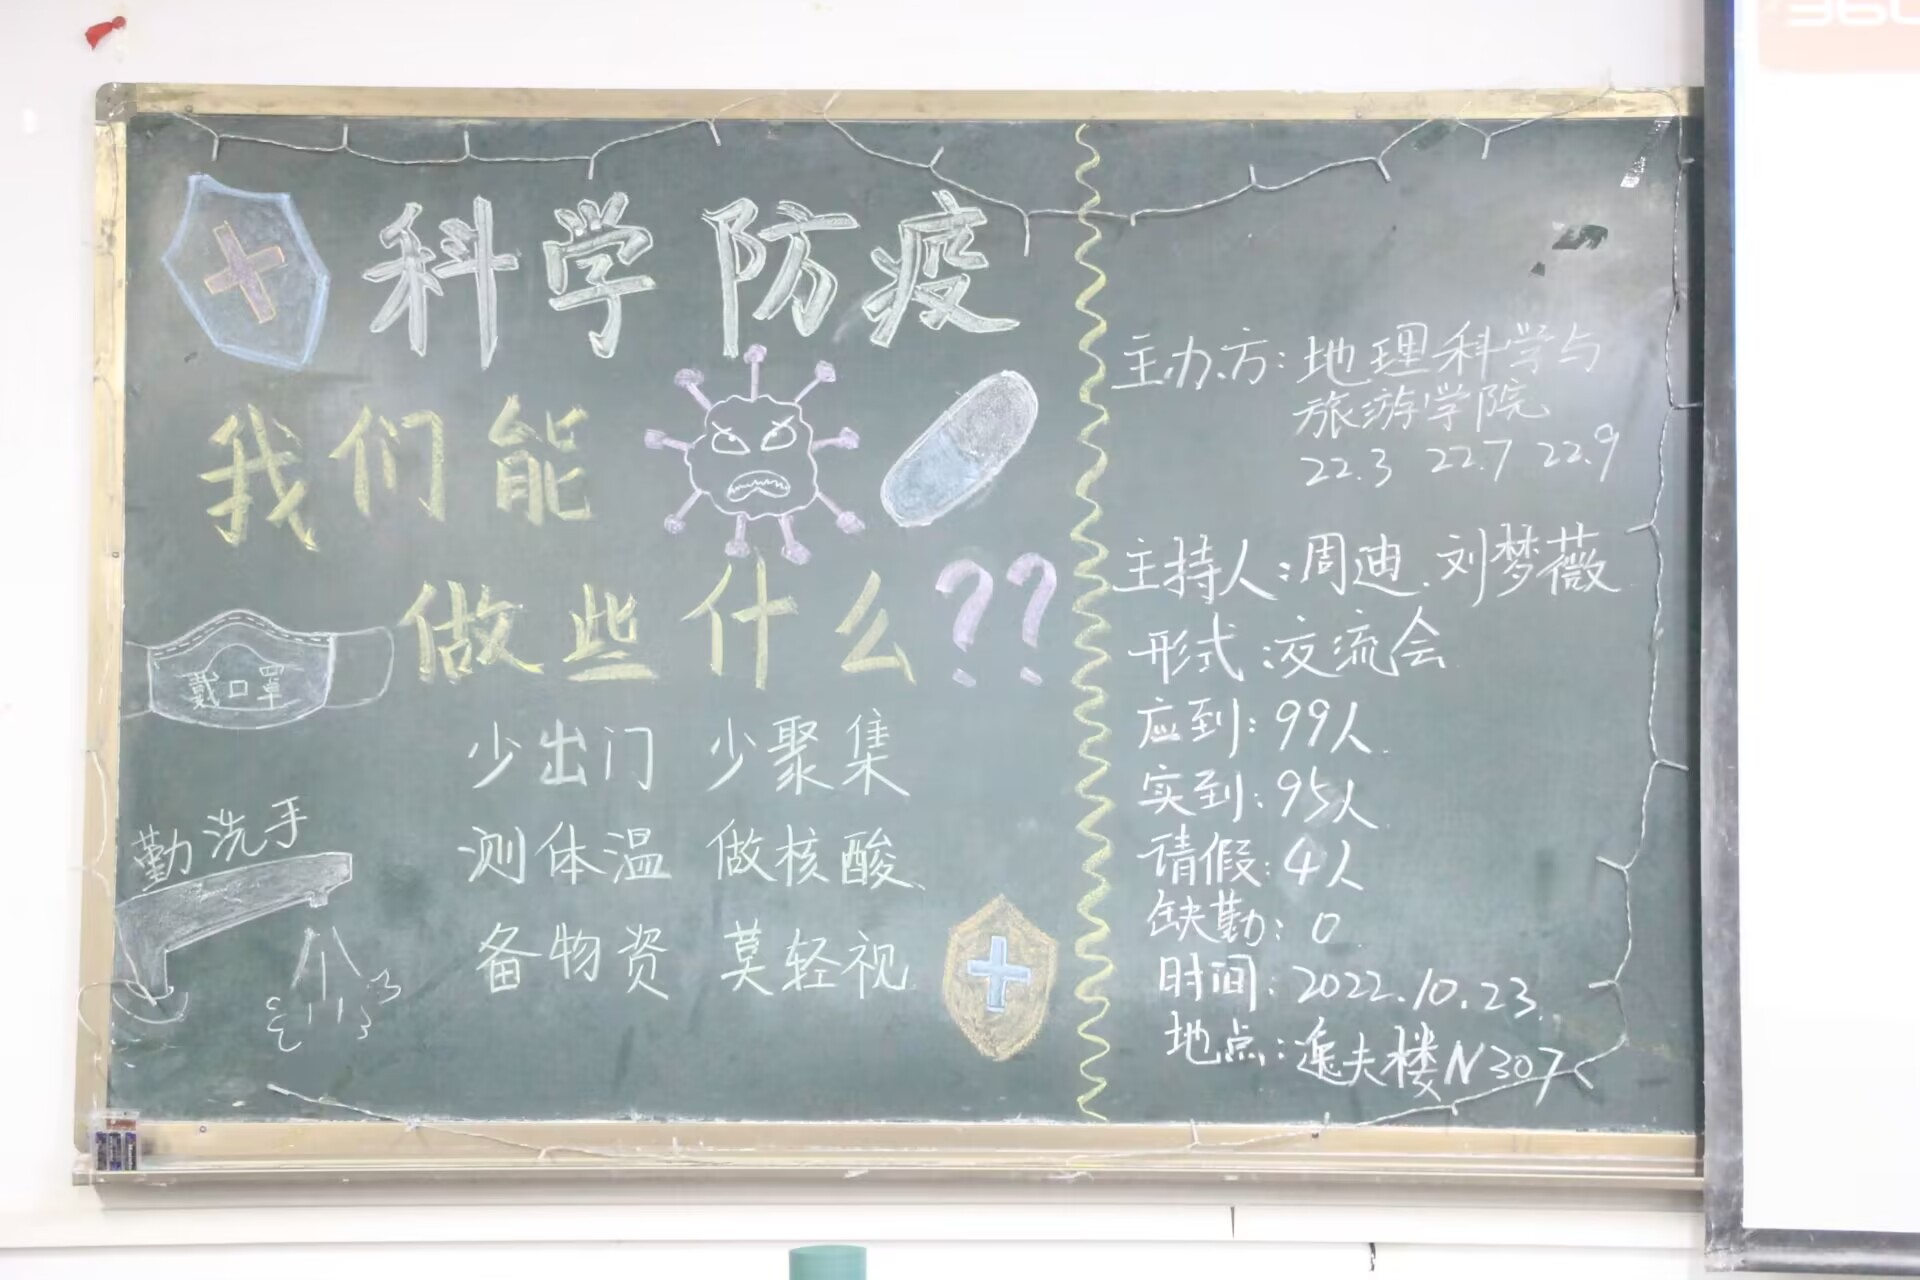 科学防疫
我们能
做些什么??
戴口罩
少出门 少聚集
勤洗手
测体温 做核酸
备物资 莫轻视
主办方:地理科学与
旅游学院
22.3 22.7 22.9
主持人:周迪、刘梦薇
形式:交流会
应到:99人
实到:95人
请假:4人
缺勤:0
时间:2022.10.23.
地点:逸夫楼N307
360